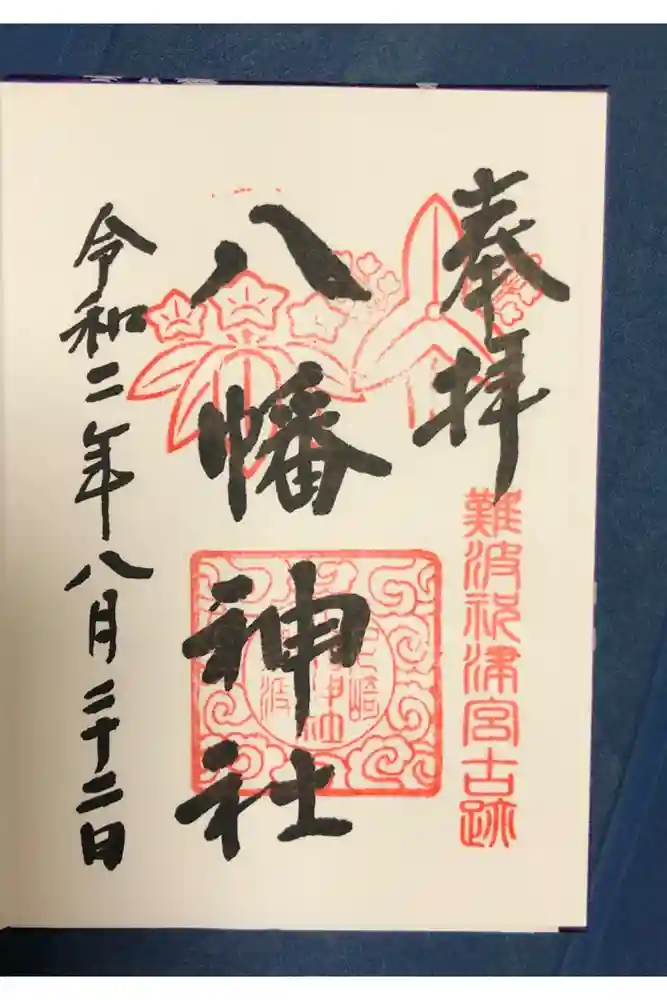 奉拝
難波祝津宮古跡
八幡神社
令和二年八月二十二日